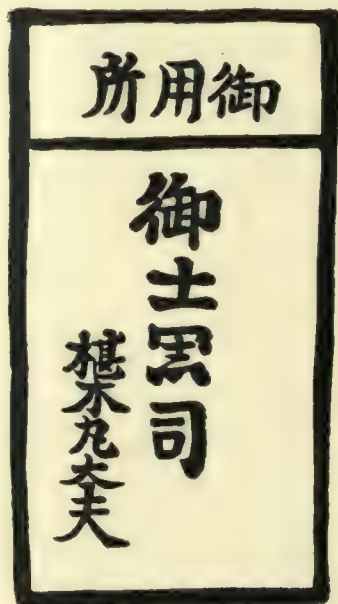 御用所
御土器司
椹木丸太夫